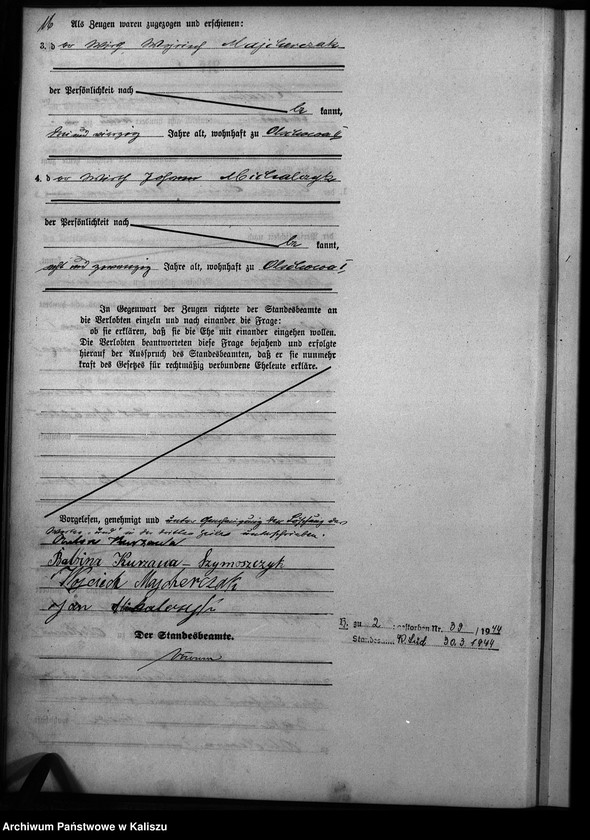 16
Als Zeugen waren zugezogen und erschienen:
3. der Wirth Wojciech Majcherczak
der Persönlichkeit nach
be kannt,
drei und vierzig Jahre alt, wohnhaft zu
4. der Wirth Johann Michalczyk
der Persönlichkeit nach
be kannt,
acht und zwanzig Jahre alt, wohnhaft zu
In Gegenwart der Zeugen richtete der Standesbeamte an
die Verlobten einzeln und nach einander die Frage:
ob sie erklären, daß sie die Ehe mit einander eingehen wollen.
Die Verlobten beantworteten diese Frage bejahend und erfolgte
hierauf der Ausspruch des Standesbeamten, daß er sie nunmehr
kraft des Gesetzes für rechtmäßig verbundene Eheleute erkläre.
Vorgelesen, genehmigt und unter Genehmigung der Löschung des
Wortes „und" in der dritten Zeile unterschrieben.
Kurzawa
Balbina Kurzawa - Szymoszczyk
Wojciech Majcherczak
Jan
Der Standesbeamte.
H. zu 2 gestorben Nr. 39 / 1944
Standes 30.3.1944
Archiwum Państwowe w Kaliszu